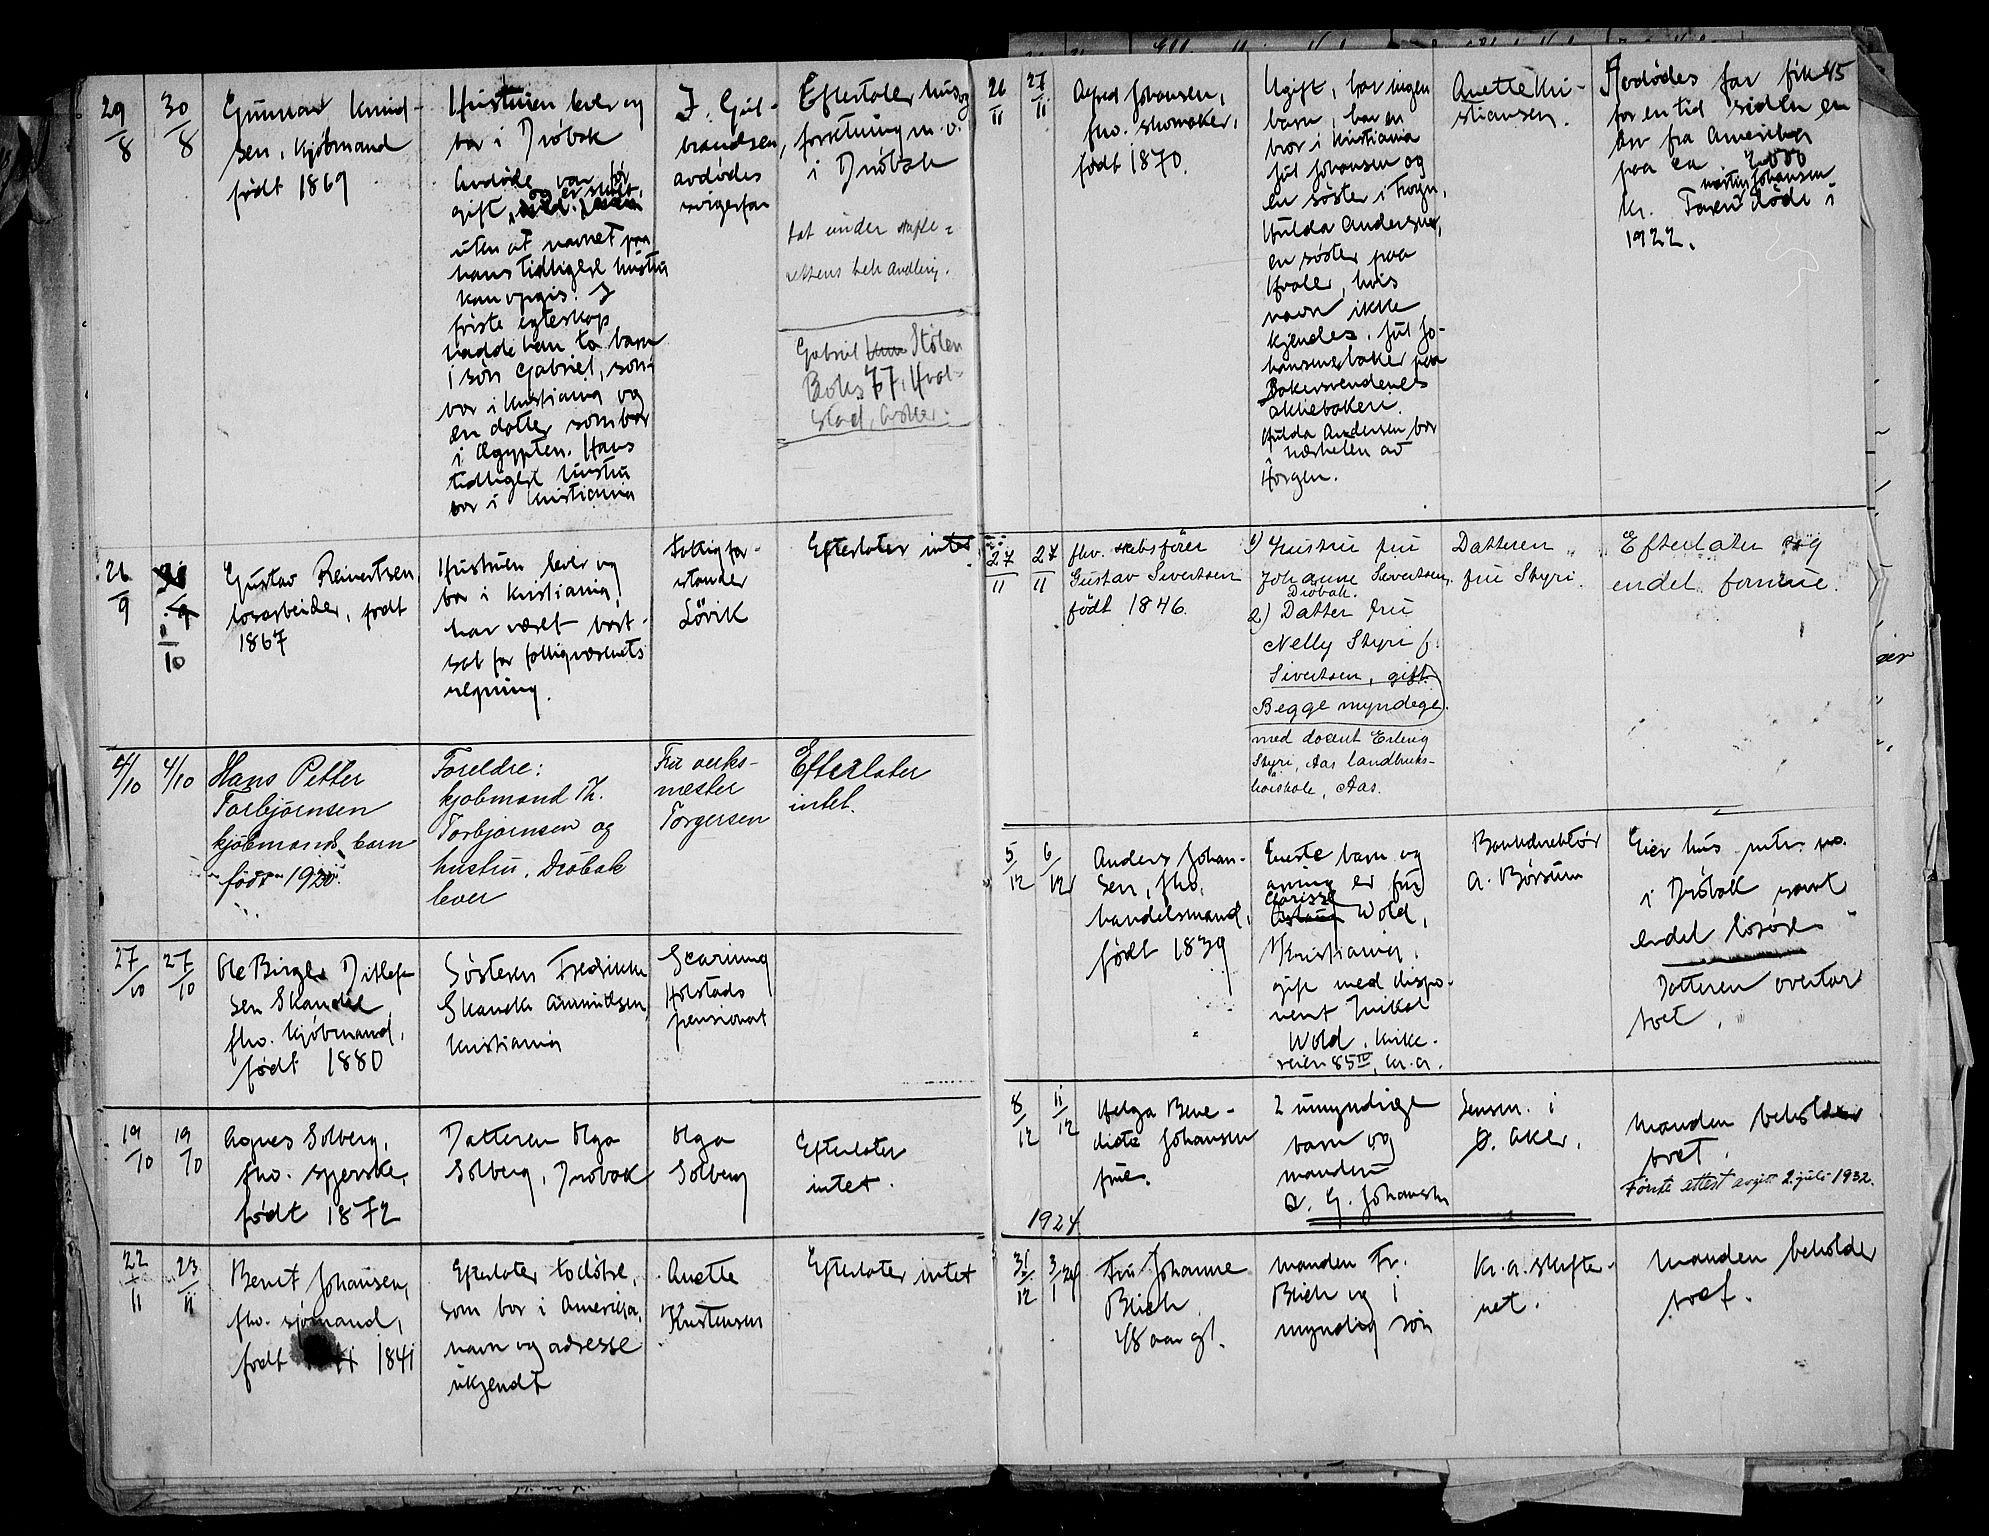 29/8
30/8
Gunnar Knud-
sen, kjøbmand
født 1869
Hustruen lever og
bor i Drøbak
Avdøde var før
gift, og er skilt,
uten at navnet paa
hans tidligere hustru
kan opgis. I
første egteskap
hadde han to barn
1 søn Gabriel, som
bor i Kristiania og
en datter som bor
i Ægypten. Hans
tidligere hustru
bor i Kristiania
J. Gul-
brandsen,
avdødes
svigerfar
Efterlater hus og
forretning m.v.
i Drøbak
tat under skifte-
rettens behandling.
Gabriel Knu Stølen
Boks 77, Hval-
stad, Asker.
26/9
30/9
1/10
Gustav Reinertsen,
løsarbeider, født
1867
Hustruen lever og
bor i Kristiania,
har været bort-
sat for fattigvæsenets
regning.
Fattigfor-
stander
Lövik
Efterlater intet
4/10
4/10
Hans Petter
Torbjørnsen
kjøbmands barn
født 1920.
Foreldre:
kjøbmand Th.
Torbjørnsen og
hustru, Drøbak
lever
Fru verks-
mester
Torgersen
Efterlater
intet.
27/10
27/10
Ole Birger Ditlef-
sen Skancke
fhv. kjøbmand,
født 1880
Søsteren Fredrikke
Skancke Amundsen,
Kristiania
Holstads
pensionat
19/10
19/10
Agnes Solberg,
fhv. syerske,
født 1872
Datteren Olga
Solberg, Drøbak
Olga
Solberg
Efterlater
intet.
22/11
23/11
Bernt Johansen,
fhv. sjømand,
født 1841
Efterlater to døtre,
som bor i Amerika,
navn og adresse
ukjendt
Anette
Kristensen
Efterlater intet
45
26/11
27/11
Alfred Johansen,
fhv. skomaker,
født 1870.
Ugift, har ingen
barn, har en
bror i Kristiania
Jul Johansen og
en søster i Frogn,
Hulda Andersen,
en søster paa
Hvaler, hvis
navn ikke
kjendes. Jul Jo-
hansen baker paa
Bakersvendenes
aktiebakeri.
Hulda Andersen bor
i nærheten av
Horgen.
Anette Kri-
stiansen.
Avdødes far fik
for en tid siden en
arv fra Amerika
paa ca. 2,000
kr. Faren Martin Johansen døde i
1922.
27/11
27/11
fhv. skibsfører
Gustav Sivertsen
født 1846.
1) Hustru fru
Johanne Sivertsen,
Drøbak.
2) Datter fru
Nelly Styri f.
Sivertsen, gift
Begge myndige.
med docent Erling
Styri, Aas landbruks-
høiskole, Aas.
Datteren
fru Styri.
Efterlater sig
endel formue.
5/12
6/12
Anders Johan-
sen, fhv.
handelsmand,
født 1839
Eneste barn og
arving er fru
Clarisse
Wold,
Kristiania,
gift med dispo-
nent Mikal
Wold, Kirke-
veien 85 IV, Kr.a.
Bankdirektør
A. Børsum
Eier hus
i Drøbak samt
endel løsøre
Datteren overtar
boet.
8/12
11/12
Helga Bene-
dicte Johansen
frue.
2 umyndige
barn og
manden
O. G. Johansen
Lensm. i
Ø. Aker.
Manden beholder
boet.
Første attest avgit 2 juli 1932.
1924
31/12
3/1 24
Fru Johanne
Blich
48 aar gl.
Manden Fr.
Blich og 1
myndig søn
Kr.a. skifte-
ret.
Manden beholder
boet.